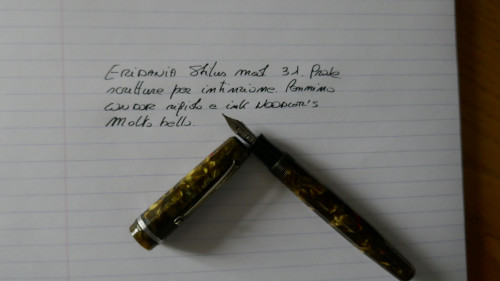 ERIDANIA Stilus mod 31. Prove
scritture per intinzione. Pennino
CONDOR rigido e ink NOODLER'S
Molto bello.